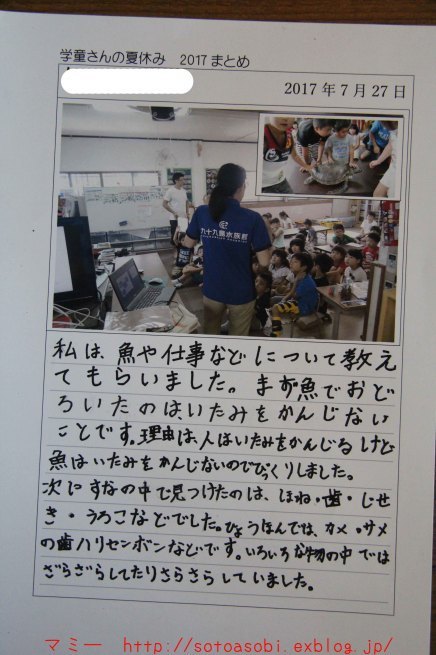 学童さんの夏休み 2017まとめ
2017年7月27日
九十九島水族館
私は、魚や仕事などについて教え
てもらいました。まず魚でおど
ろいたのはいたみをかんじない
ことです。理由は、人はいたみをかんじるけど
魚はいたみをかんじないのでびっくりしました。
次にすなの中で見つけたのは、ほね・歯・じせ
き・うろこなどでした。ひょうほんでは、カメ・サメ
の歯ハリセンボンなどです。いろいろな物の中では
ざらざらしてたりさらさらしていました。
マミー http://sotoasobi.exblog.jp/